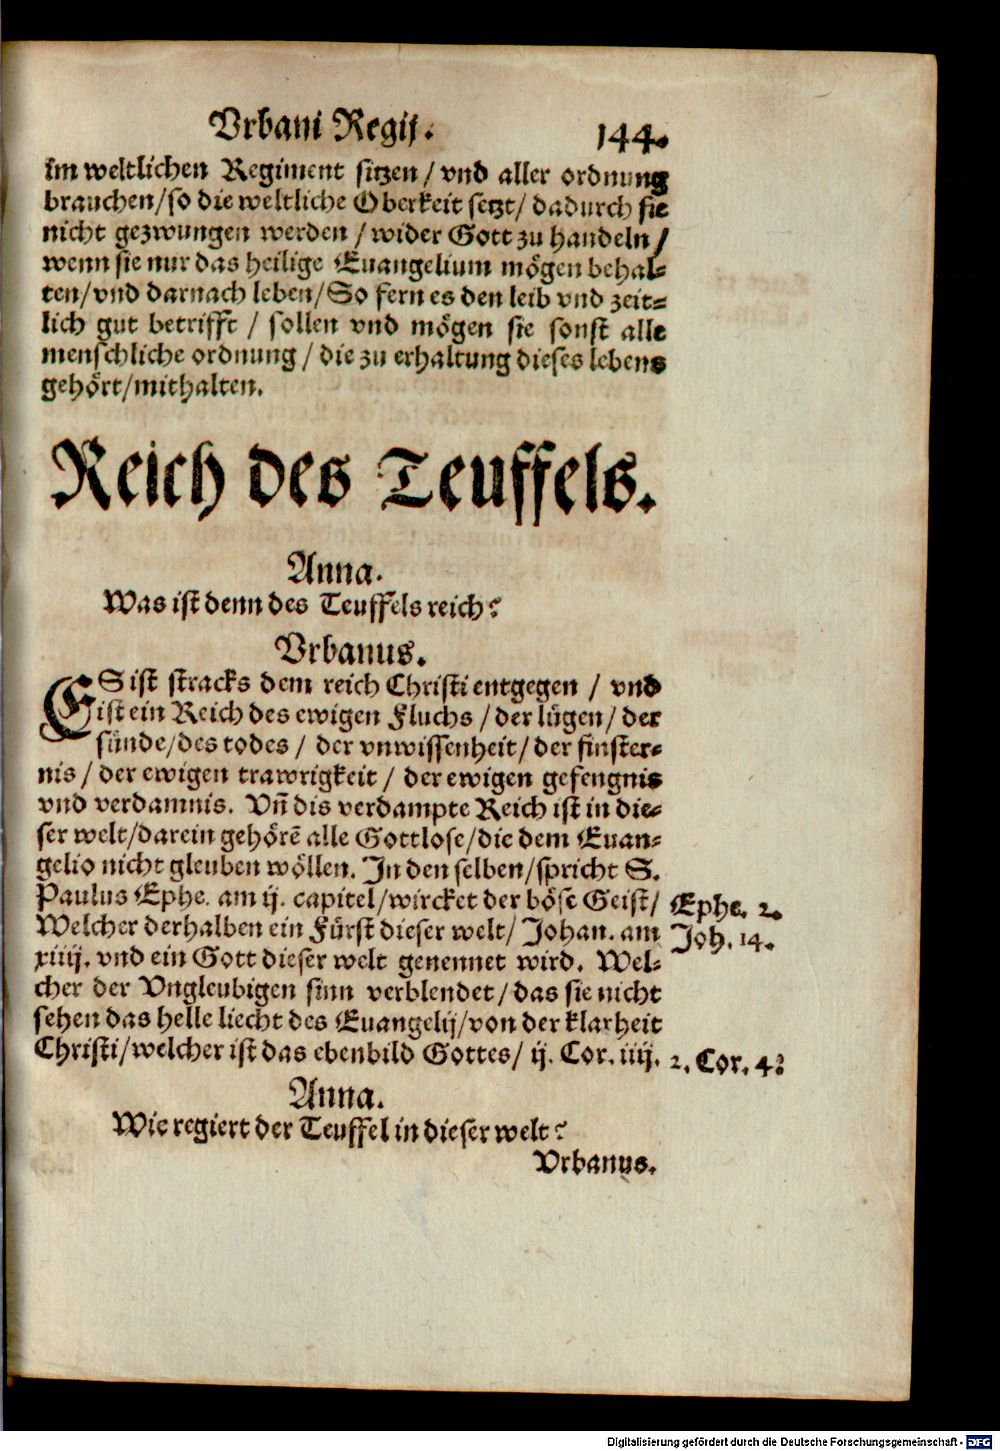 Vrbani Regij. 144.
im weltlichen Regiment sitzen / vnd aller ordnung
brauchen/so die weltliche Oberkeit setzt/ dadurch sie
nicht gezwungen werden / wider Gott zu handeln /
wenn sie nur das heilige Euangelium mögen behal-
ten/vnd darnach leben/So fern es den leib vnd zeit-
lich gut betrifft / sollen vnd mögen sie sonst alle
menschliche ordnung / die zu erhaltung dieses lebens
gehört/mithalten.
Reich des Teuffels.
Anna.
Was ist denn des Teuffels reich?
Vrbanus.
ES ist stracks dem reich Christi entgegen / vnd
ist ein Reich des ewigen Fluchs / der lügen/ der
sünde/des todes / der vnwissenheit/ der finster-
nis / der ewigen trawrigkeit / der ewigen gefengnis
vnd verdamnis. Vñ dis verdampte Reich ist in die-
ser welt/darein gehörẽ alle Gottlose/die dem Euan-
gelio nicht gleuben wöllen. In den selben/spricht S.
Paulus Ephe. am ij. capitel/wircket der böse Geist/ Ephe. 2.
Welcher derhalben ein Fürst dieser welt/ Johan. am Joh. 14.
xiiij. vnd ein Gott dieser welt genennet wird. Wel-
cher der Vngleubigen sinn verblendet/das sie nicht
sehen das helle liecht des Euangelij/von der klarheit
Christi/welcher ist das ebenbild Gottes/ ij. Cor. iiij. 2. Cor. 4:
Anna.
Wie regiert der Teuffel in dieser welt?
Vrbanus.
Digitalisierung gefördert durch die Deutsche Forschungsgemeinschaft - DFG